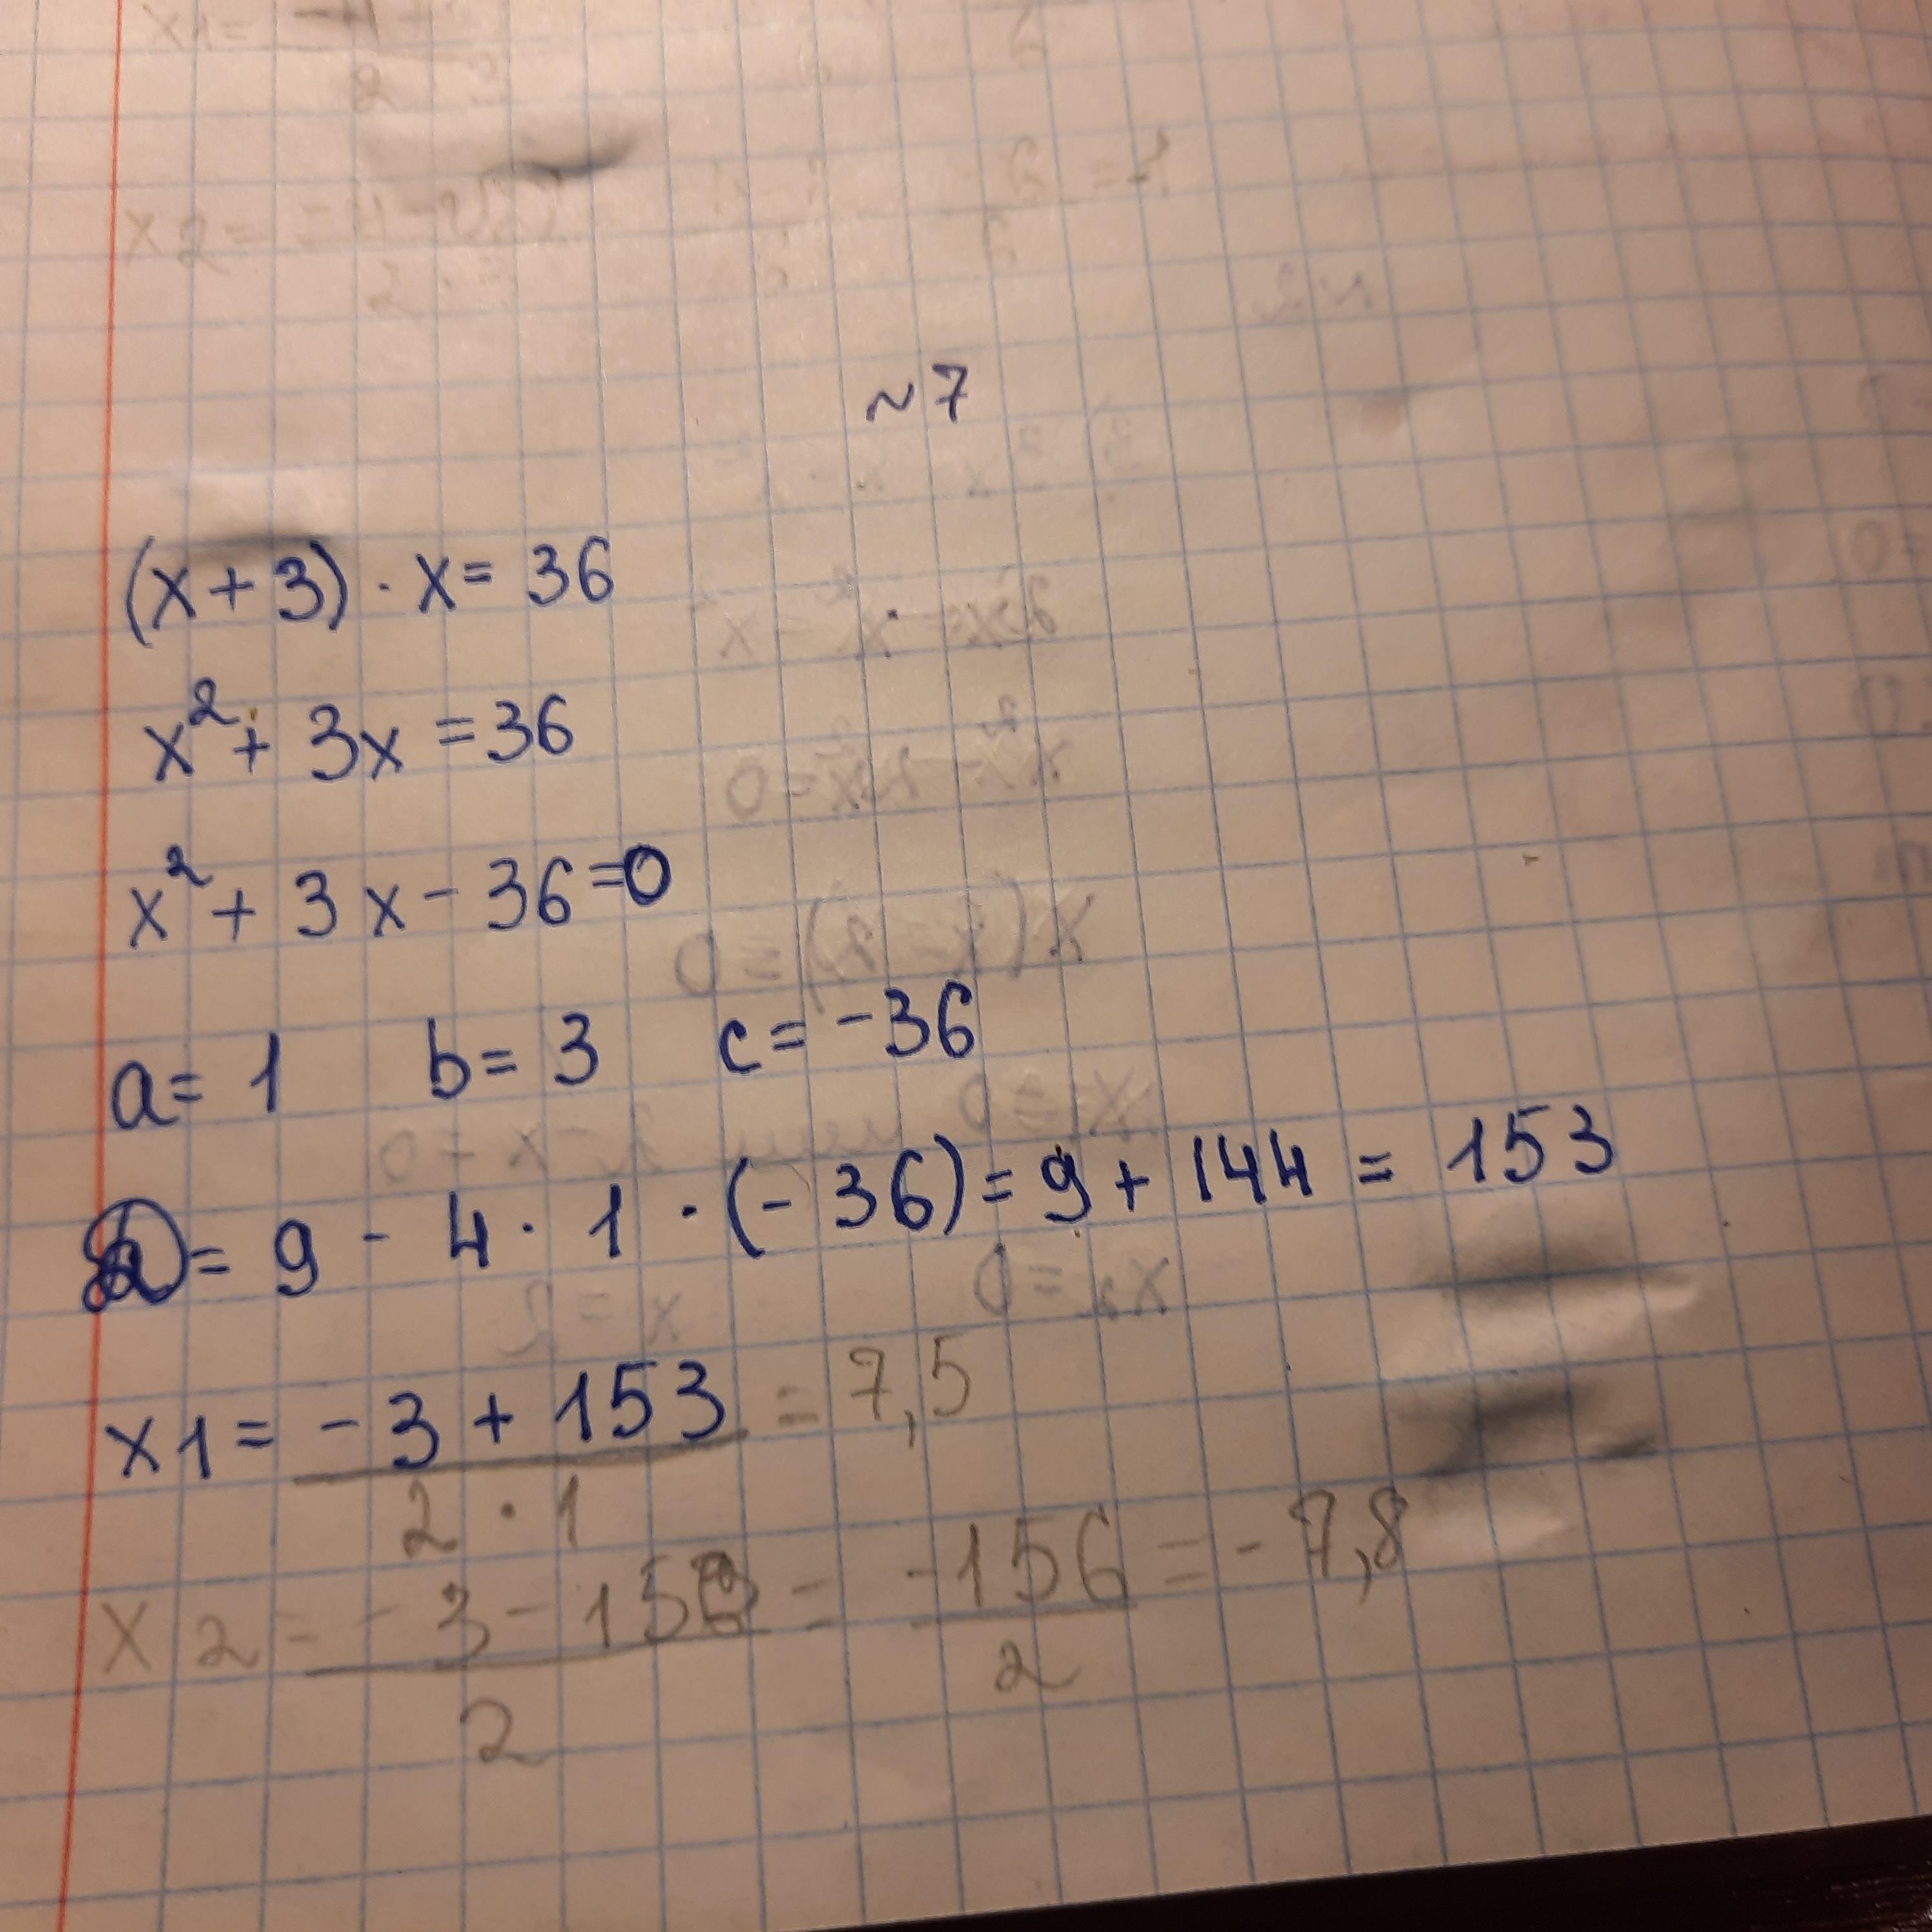 ~7
(x+3)·x=36
x²+3x=36
x²+3x-36=0
a=1 b=3 c=-36
D=9-4·1·(-36)=9+144=153
x1=-3+153/2·1=7,5
x2=-3-153/2=-156/2=-7,8